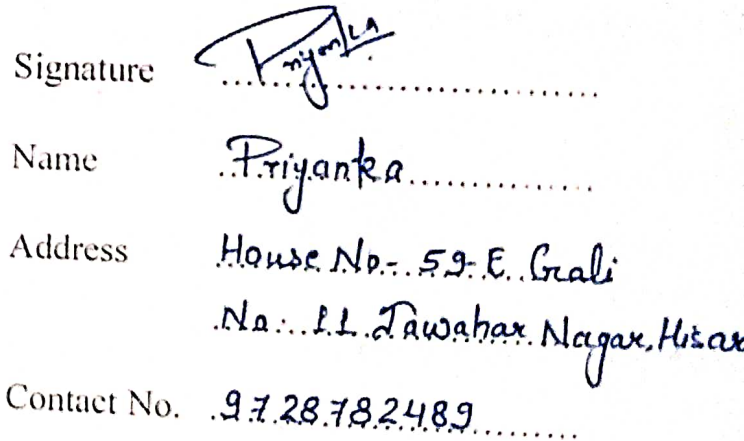 Signature Priyanka
Name Priyanka
Address House No- 59-E Gali
No. 11 Jawahar Nagar, Hisar
Contact No. 9728782489